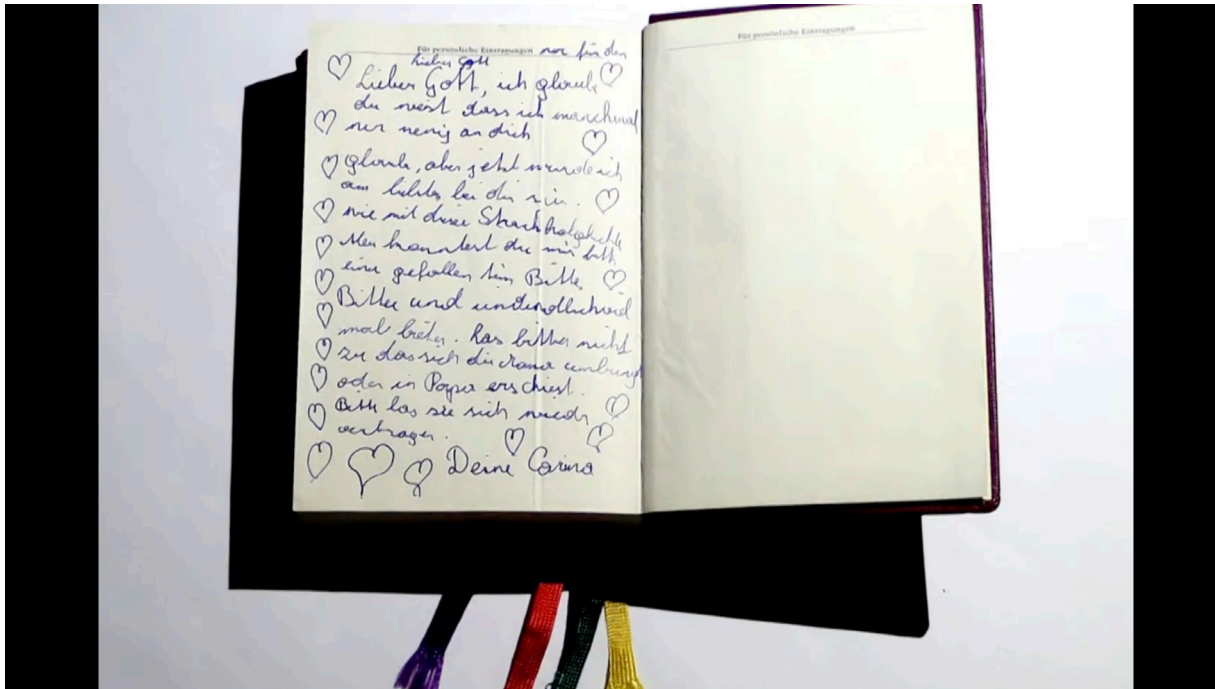 Für persönliche Eintragungen nur für den
lieber Gott
Lieber Gott, ich glaube
du weist dass ich manchmal
nur wenig an dich
glaube, aber jetzt wurde ich
am liebsten bei dir sein.
wie mit dieser
konntest du mir bitte
einen gefallen tun Bitte
Bitte und unendlichviel
mal bitte. Las bitte nicht
zu das sich die Mama umbringt
oder in Papa erschiest.
Bitte las sie sich wieder
vertragen.
Deine Carina
Für persönliche Eintragungen